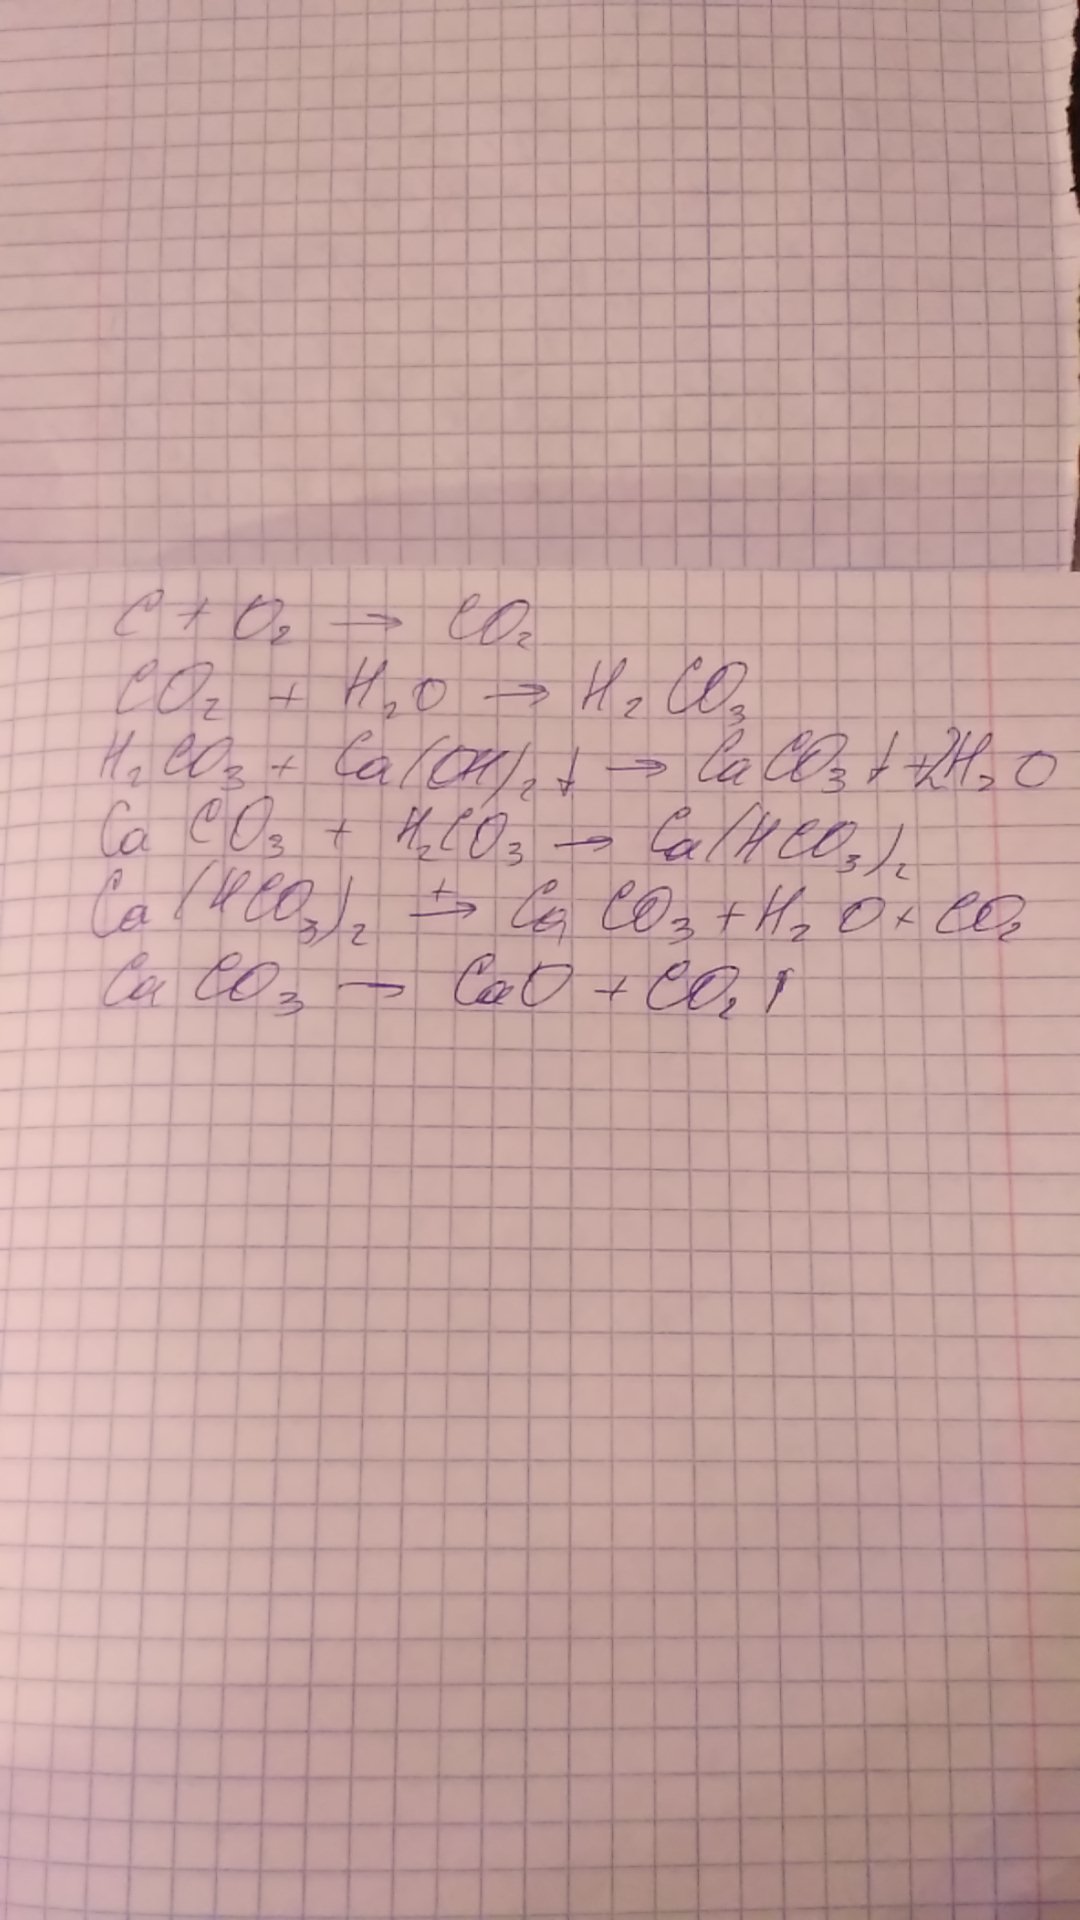 C + O₂ → CO₂
CO₂ + H₂O → H₂CO₃
H₂CO₃ + Ca(OH)₂↓ → CaCO₃↓ + 2H₂O
CaCO₃ + H₂CO₃ → Ca(HCO₃)₂
Ca(HCO₃)₂ –t→ CaCO₃ + H₂O + CO₂
CaCO₃ → CaO + CO₂↑